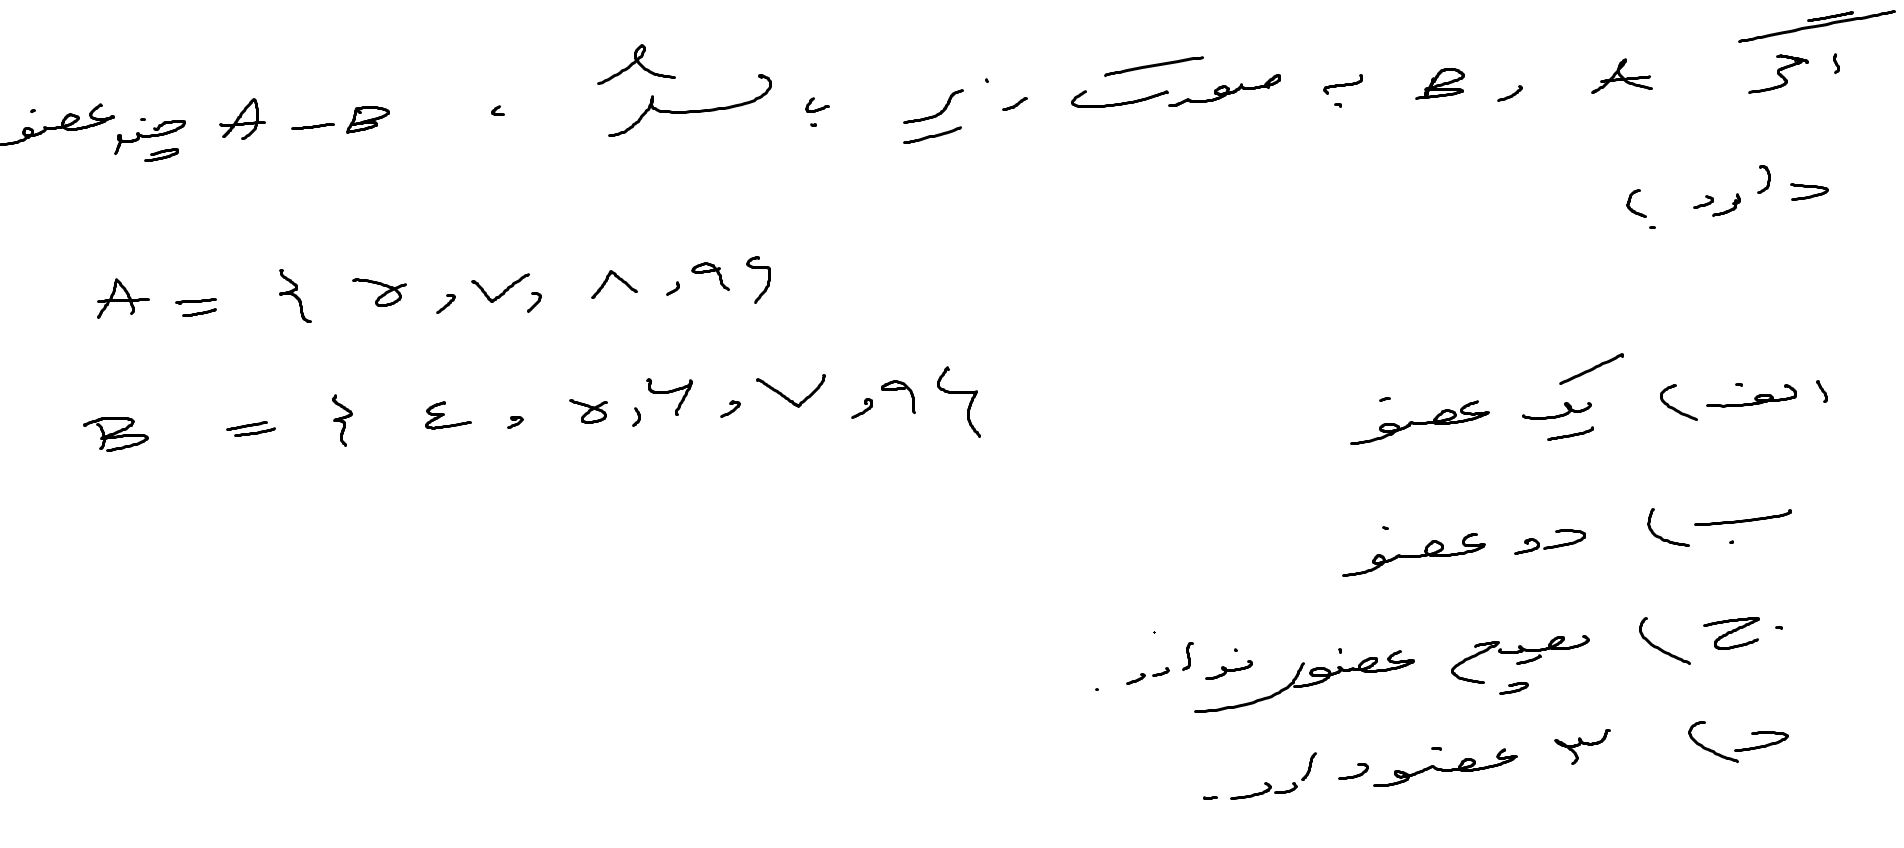 اگر A و B به صورت زیر باشد ، A - B چند عضو
دارد؟
A = { ۵ , ۷ , ۸ , ۹ }
B = { ۴ , ۵ , ۶ , ۷ , ۹ }
الف) یک عضو
ب) دو عضو
ج) هیچ عضوی ندارد.
د) ۳ عضو دارد.